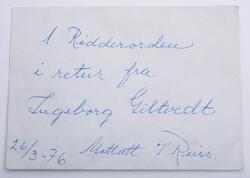 1 Ridderorden
i retur fra
Ingeborg Giltvedt
26/3-76 Mottatt T Reiss.